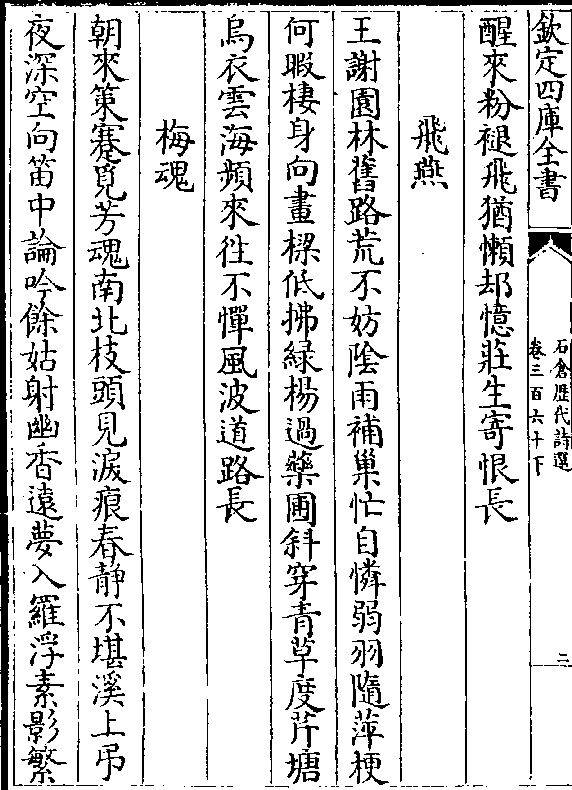 欽定四庫全書
石倉歴代詩選
卷三百六十下
二
醒來粉褪飛猶懶却憶莊生寄恨長
飛燕
王謝園林舊路荒不妨陰雨補巢忙自憐弱羽隨萍梗
何暇棲身向畫樑低拂緑楊過藥圃斜穿青草度芹塘
烏衣雲海頻來徃不憚風波道路長
梅魂
朝來策蹇覓芳魂南北枝頭見淚痕春靜不堪溪上弔
夜深空向笛中論吟餘姑射幽香逺夢入羅浮素影繁